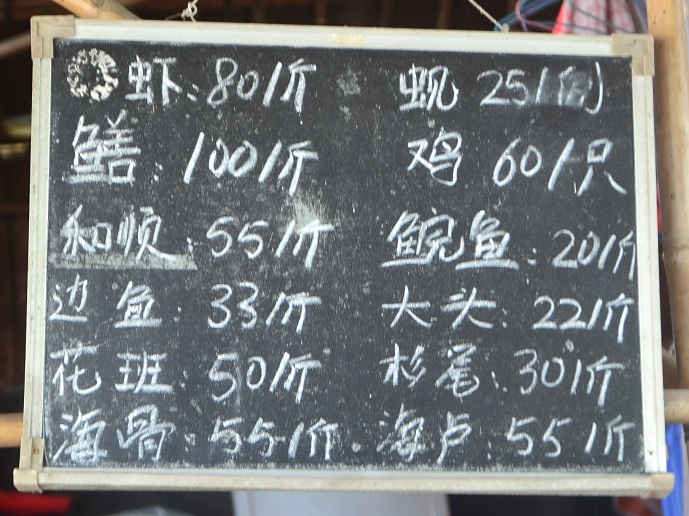 虾:80/斤 蚬 25/例
鳝:100/斤 鸡 60/只
和顺:55/斤 鲩鱼:20/斤
边鱼:33/斤 大头:22/斤
花班:50/斤 杉尾:30/斤
海骨:55/斤 海卢:55/斤